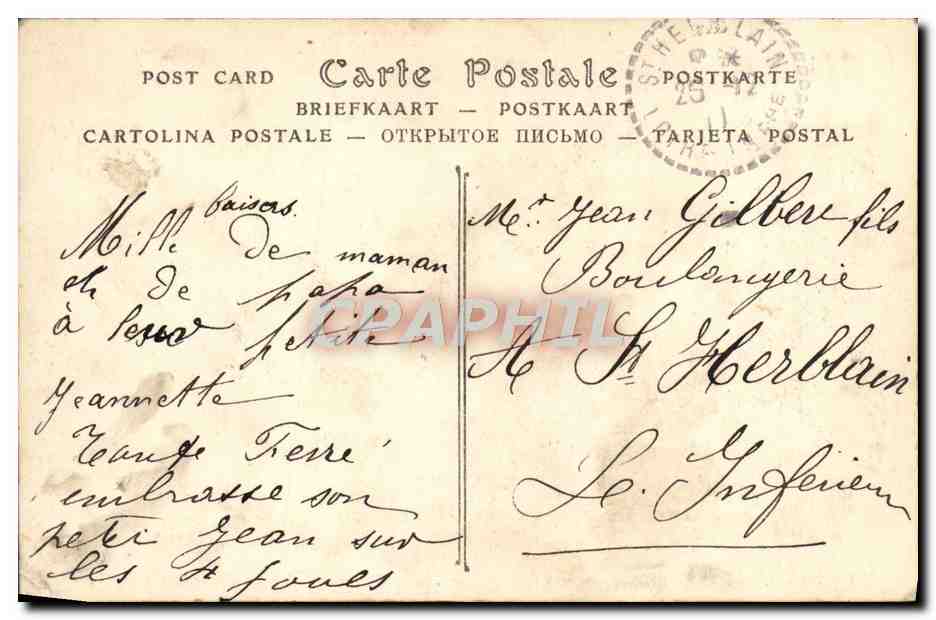 POST CARD Carte Postale POSTKARTE
BRIEFKAART — POSTKAART
CARTOLINA POSTALE — ОТКРЫТОЕ ПИСЬМО — TARJETA POSTAL
ST HERBLAIN
25 -12
11
LOIRE INFRE
Mille baisers de maman
et de papa
à leur petite
Jeannette
Tante Ferré
embrasse son
petit Jean sur
les 4 joues
Mr. Jean Gilbert fils
Boulangerie
A St Herblain
Le. Inférieure
CPAPHIL